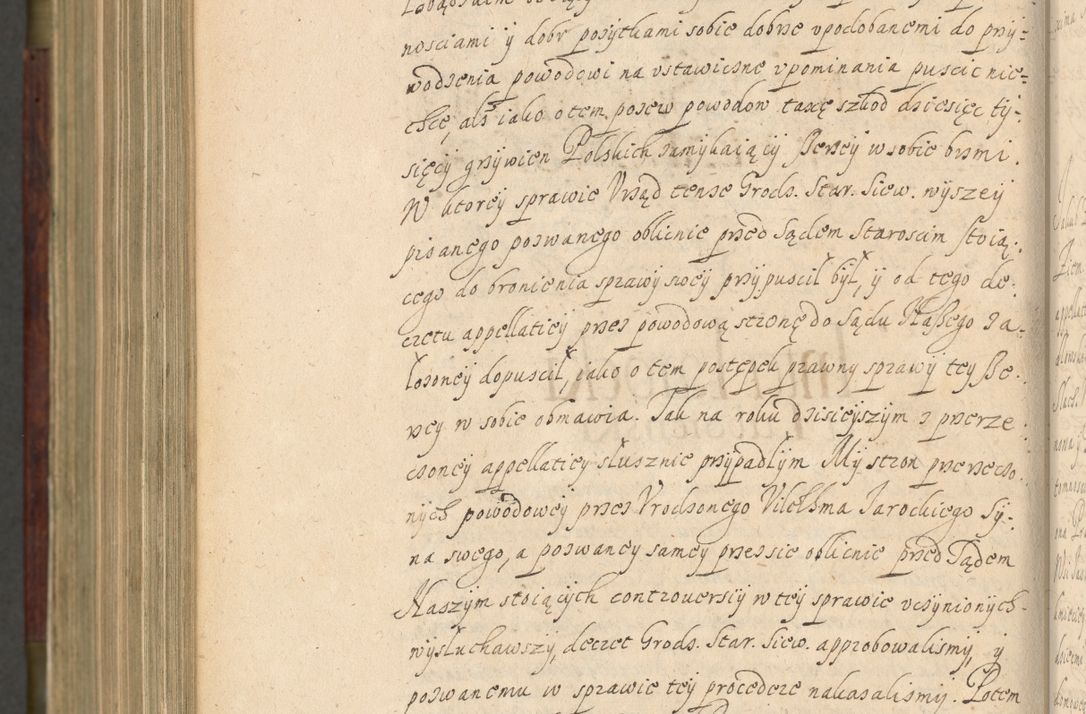 nosciami y dobr pozytkami sobie dobrze vpodobanemi do przy-
wodzenia powodowi na vstawiczne vpominania puscic nie-
chce, als iako o tem pozew powodow taxę szkod dziesięc ty-
sięcy grzywien Polskich zamykaiący szerzey w sobie brzmi.
W ktorey sprawie Vrząd tenze Grodz. Star. Siew. wyszey
pisanego pozwanego oblicnie przed Sądem Staroscim stoią-
cego do bronienia sprawy swey przypuscił był, y od tego de-
cretu appellatiey przez powodową stronę do Sądu Naszego za-
łozoney dopuscił, iako o tem postępek prawny sprawy tey sze-
rzey w sobie obmawia. Tak na roku dzisieyszym z przerze-
czoney appellatiey slusznie przypadłym My stron przerzeczo-
nych powodowey przez Vrodzonego Vilchelma Jarockiego sy-
na swego, a pozwaney samey przez sie oblicnie przed Sądem
Naszym stoiących controuersiy w tey sprawie vczynionych
wysłuchawszy, decret Grodz. Star. Siew. approbowalismy, y
pozwanemu w sprawie tey procedere nakazalismy. Potem